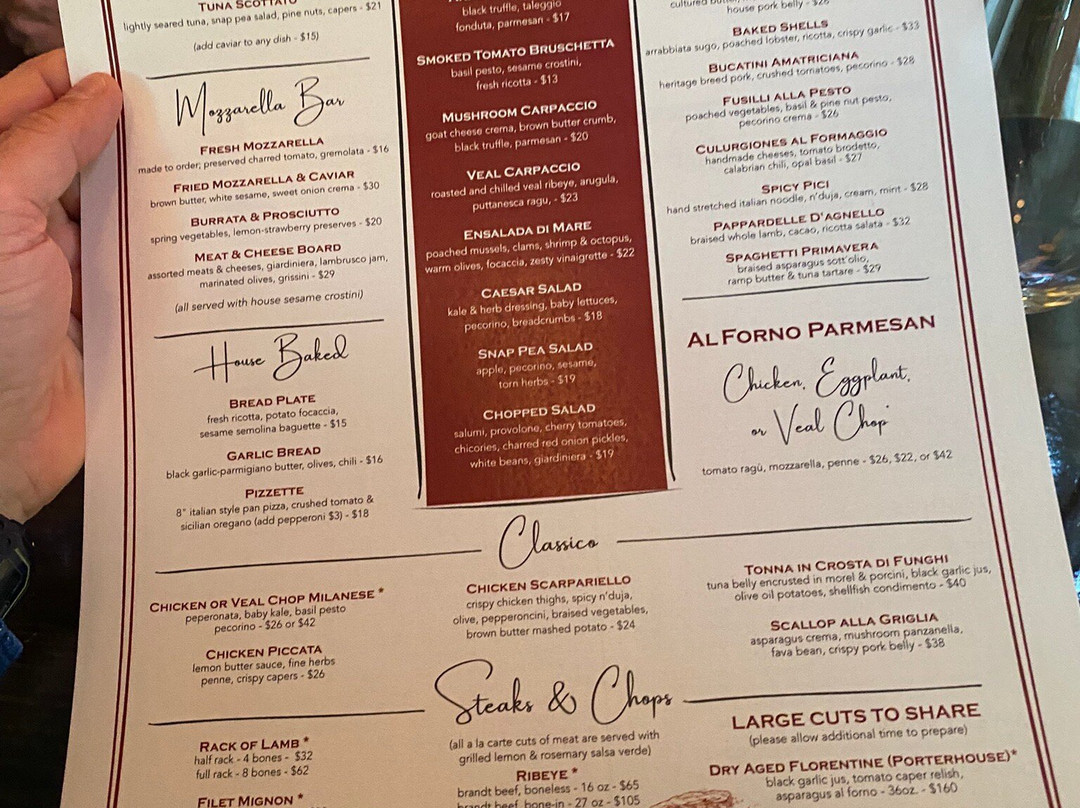 Tuna Scottato
lightly seared tuna, snap pea salad, pine nuts, capers - $21
(add caviar to any dish - $15)
Mozzarella Bar
Fresh Mozzarella
made to order, preserved charred tomato, gremolata - $16
Fried Mozzarella & Caviar
brown butter, white sesame, sweet onion crema - $30
Burrata & Prosciutto
spring vegetables, lemon-strawberry preserves - $20
Meat & Cheese Board
assorted meats & cheeses, giardiniera, lambrusco jam,
marinated olives, grissini - $29
(all served with house sesame crostini)
House Baked
Bread Plate
fresh ricotta, potato focaccia,
sesame semolina baguette - $15
Garlic Bread
black garlic-parmigiano butter, olives, chili - $16
Pizzette
8" italian style pan pizza, crushed tomato &
sicilian oregano (add pepperoni $3) - $18
black truffle, taleggio
fonduta, parmesan - $17
Smoked Tomato Bruschetta
basil pesto, sesame crostini,
fresh ricotta - $13
Mushroom Carpaccio
goat cheese crema, brown butter crumb,
black truffle, parmesan - $20
Veal Carpaccio
roasted and chilled veal ribeye, arugula,
puttanesca ragu, - $23
Ensalada di Mare
poached mussels, clams, shrimp & octopus,
warm olives, focaccia, zesty vinaigrette - $22
Caesar Salad
kale & herb dressing, baby lettuces,
pecorino, breadcrumbs - $18
Snap Pea Salad
apple, pecorino, sesame,
torn herbs - $19
Chopped Salad
salumi, provolone, cherry tomatoes,
chicories, charred red onion pickles,
white beans, giardiniera - $19
house pork belly - $26
Baked Shells
arrabbiata sugo, poached lobster, ricotta, crispy garlic - $33
Bucatini Amatriciana
heritage breed pork, crushed tomatoes, pecorino - $28
Fusilli alla Pesto
poached vegetables, basil & pine nut pesto,
pecorino crema - $26
Culurgiones al Formaggio
handmade cheeses, tomato brodetto,
calabrian chili, opal basil - $27
Spicy Pici
hand stretched italian noodle, n'duja, cream, mint - $28
Pappardelle D'Agnello
braised whole lamb, cacao, ricotta salata - $32
Spaghetti Primavera
braised asparagus sott'olio,
ramp butter & tuna tartare - $29
Al Forno Parmesan
Chicken, Eggplant,
or Veal Chop
tomato ragù, mozzarella, penne - $26, $22, or $42
Classico
Chicken or Veal Chop Milanese *
peperonata, baby kale, basil pesto
pecorino - $26 or $42
Chicken Piccata
lemon butter sauce, fine herbs
penne, crispy capers - $26
Chicken Scarpariello
crispy chicken thighs, spicy n'duja,
olive, pepperoncini, braised vegetables,
brown butter mashed potato - $24
Tonna in Crosta di Funghi
tuna belly encrusted in morel & porcini, black garlic jus,
olive oil potatoes, shellfish condimento - $40
Scallop alla Griglia
asparagus crema, mushroom panzanella,
fava bean, crispy pork belly - $38
Steaks & Chops
Rack of Lamb *
half rack - 4 bones - $32
full rack - 8 bones - $62
Filet Mignon *
(all a la carte cuts of meat are served with
grilled lemon & rosemary salsa verde)
Ribeye *
brandt beef, boneless - 16 oz - $65
brandt beef, bone-in - 27 oz - $105
LARGE CUTS TO SHARE
(please allow additional time to prepare)
Dry Aged Florentine (Porterhouse)*
black garlic jus, tomato caper relish,
asparagus al forno - 36oz. - $160